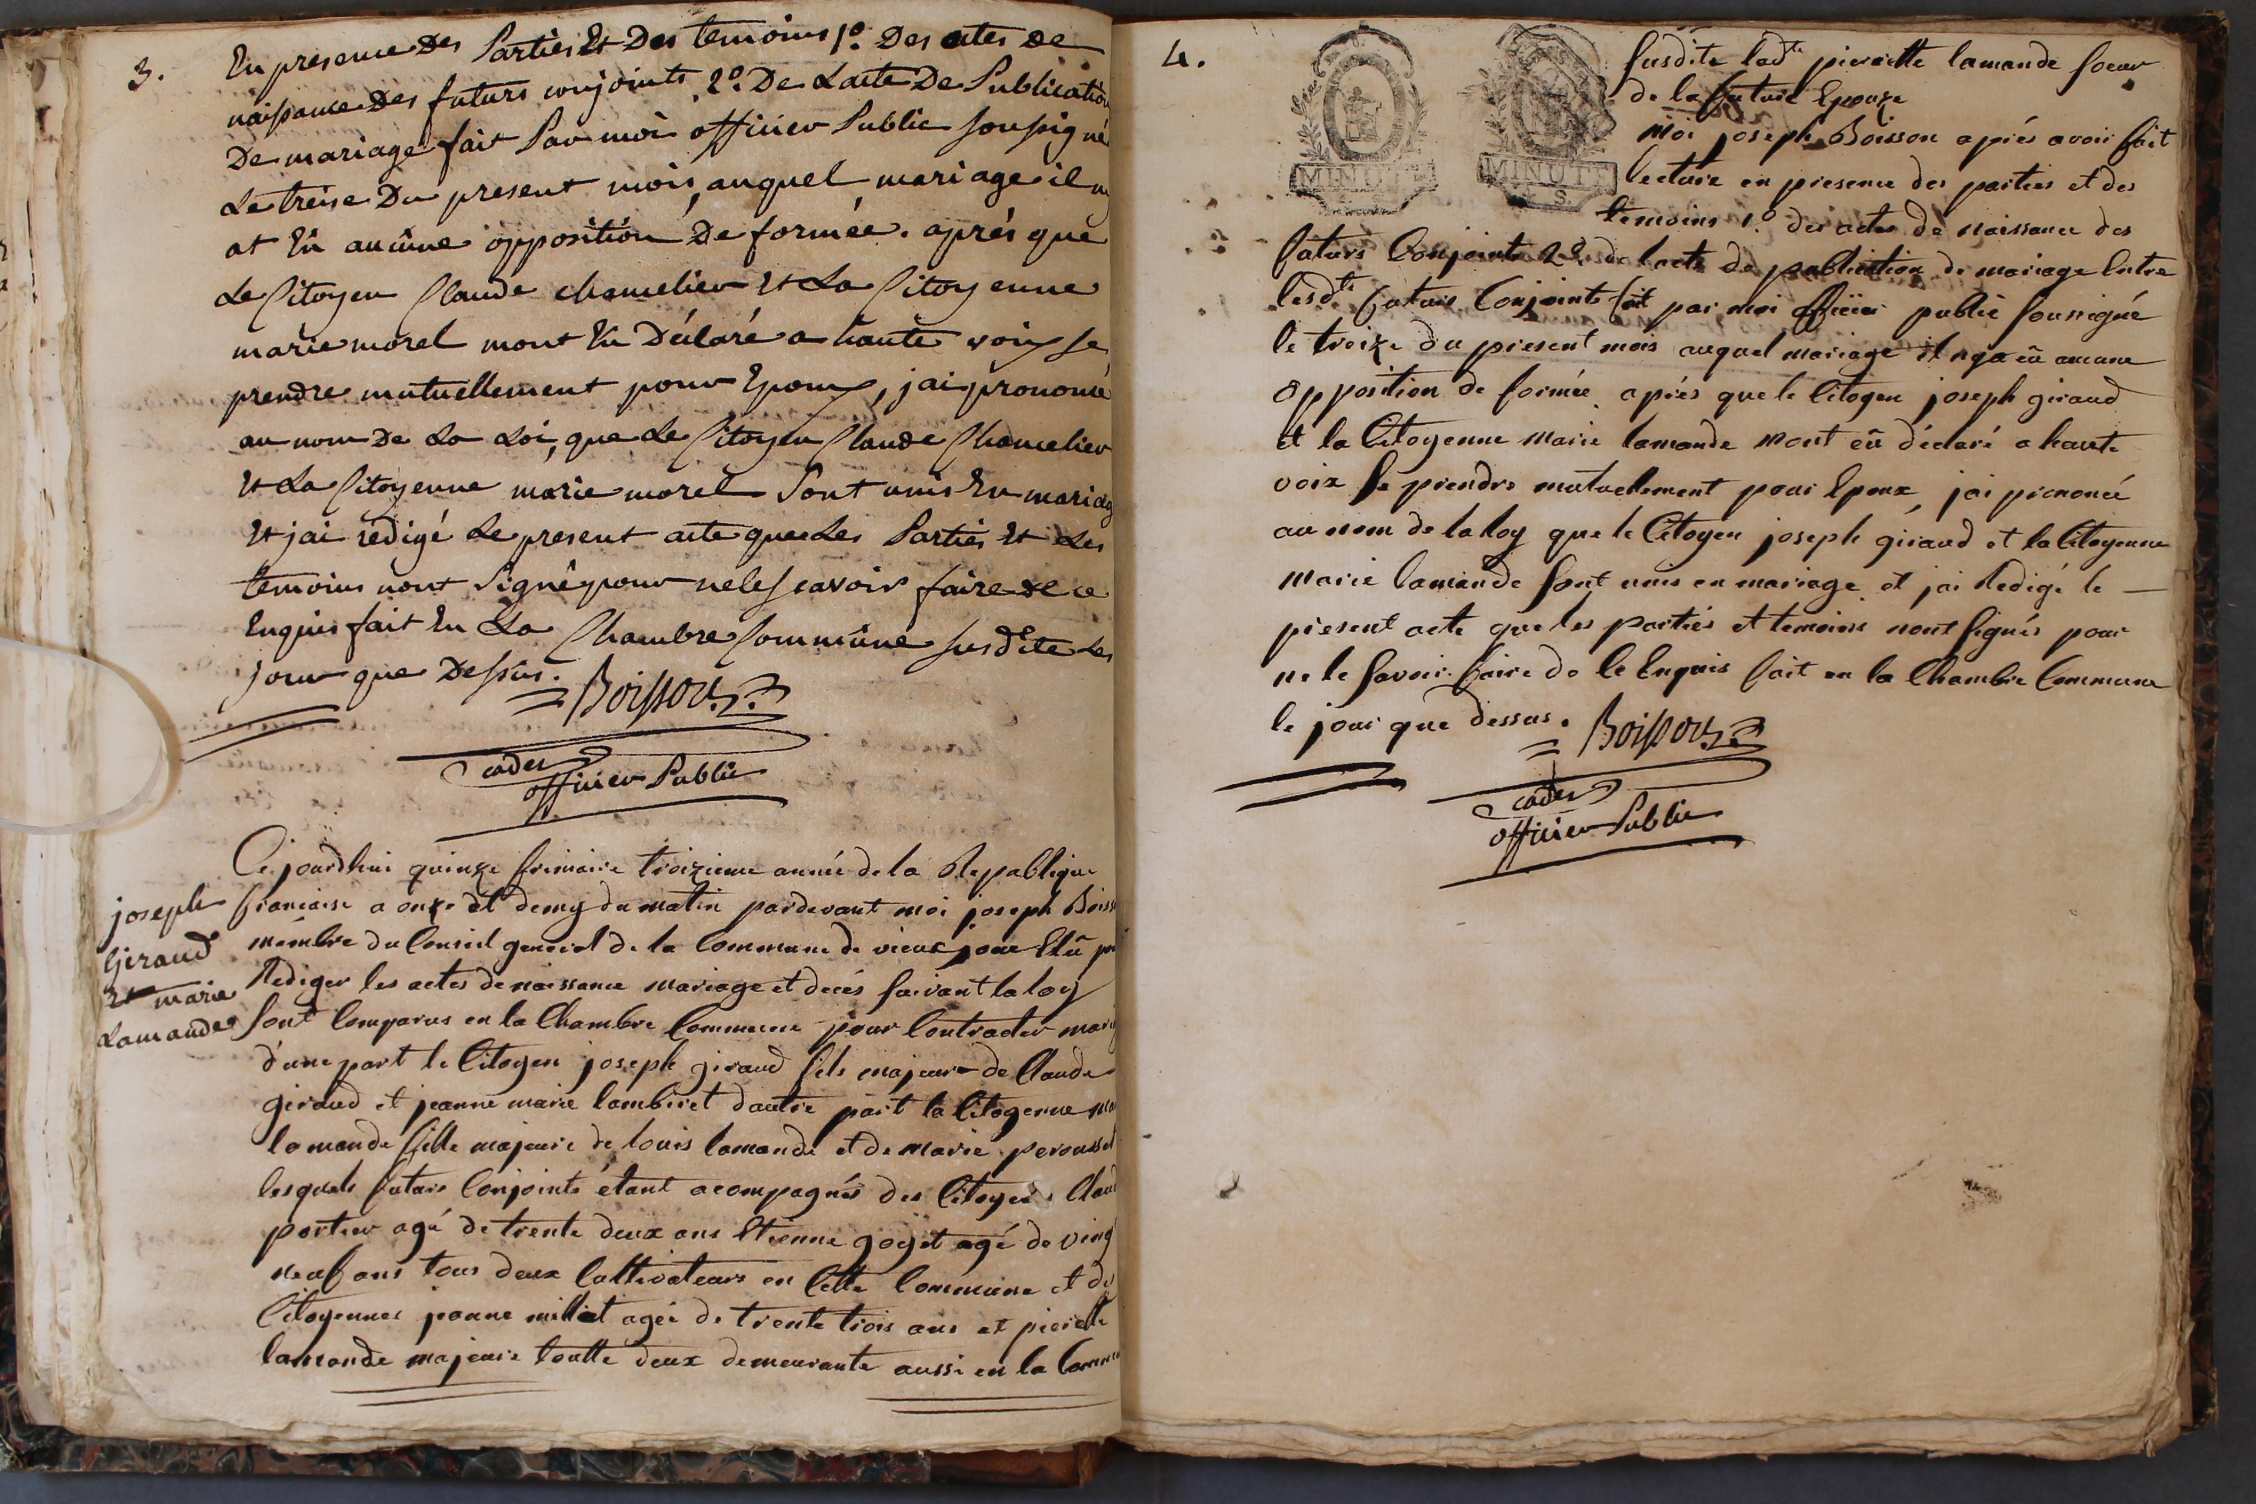 3.
En presence des Parties Et Des temoins 1o. Des actes de
naissance des futurs conjoints 2o. De Lacte De Publication
De mariage fait Par moi officier Public soussigné
Le treise Du present mois, auquel mariage il ny
at Eû aucune opposition De formée. aprés que
Le Citoyen Claude chamelier Et La Citoyenne
marie morel mont Eu Déclaré a haute voix se
prendre mutuellement pour Epoux, jai prononcé
au nom De La Loi, que Le Citoyen Claude Chamelier
Et La Citoyenne marie morel Sont unis En mariag
Et jai redigé Le present acte que Les Parties Et Les
temoins nont Signé pour ne le scavoir faire de ce
Enquis fait En La Chambre Commune susdite Les
jour que Dessus.
Boisson
officier Public
joseph
Giraud
Et marie
Lamande
Cejourdhui quinze frimaire troizieme année de la Republique
francaise a onze et demy du matin pardevant moi joseph Boiss
membre du Conseil general de la Commune de vieux joue Elû po
Rediger les actes de naissance mariage et decés suivant la loy
sont Comparus en la Chambre Commune pour Contracter mari
d'une part le Citoyen joseph giraud fils majeur de Claude
giraud et jeanne marie lambiret dautre part la Citoyenne ma
lamande fille majeure de louis lamande et de marie perousset
lesquels futurs Conjoints étant acompagnés des Citoyens Claud
portier agé de trente deux ans Etienne goyet agé de ving
neuf ans tous deux Cultivateurs en Cette Commune et de
Citoyennes jeanne millet agée de trente trois ans et pierrette
lamande majeure toutte deux demeurante aussi en la Commun
4.
MINUTE
MINUTE
S.
susdite ladte pierrette lamande soeur
de la future Epouze
Moi joseph Boisson aprés avoir fait
lecture en presence des parties et des
temoins 1o. des actes de naissance des
futurs Conjoints 2o. de lacte de publication de mariage Entre
lesdts futurs Conjoints fait par moi officier public soussigné
le treize du present mois auquel mariage il nya eû aucune
opposition de formée aprés que le Citoyen joseph giraud
et la Citoyenne Marie lamande mont eû déclaré a haute
voix se prendre mutuellement pour Epoux, jai prononcé
au nom de la loy que le Citoyen joseph giraud et la Citoyenne
Marie lamande sont unis en mariage et jai Redigé le
present acte que les parties et temoins nont signés pour
ne le savoir faire de Ce Enquis fait en la Chambre Commune
le jour que dessus.
Boisson
officier Public